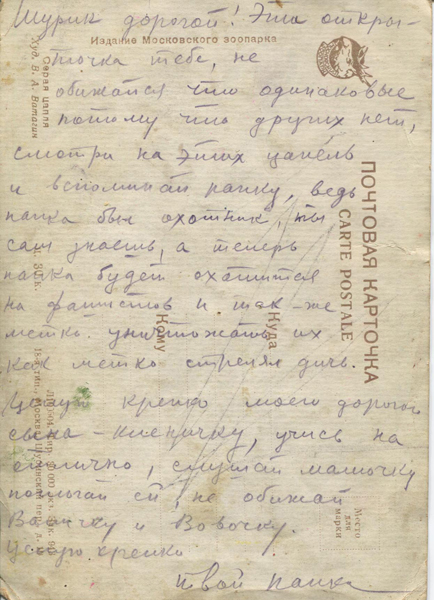 Шурик дорогой! Эта откры-
Издание Московского зоопарка
точка тебе, не
обижайся что одинаковые
потому что других нет,
смотри на этих цапель
и вспоминай папку, ведь
папка был охотник, ты
сам знаешь, а теперь
папка будет охотится
на фашистов и так-же
метко уничтожать их
как метко стрелял дичь.
Целую крепко моего дорогого
сынка учись на
отлично, слушай мамочку
помогай ей, не обижай
Валичку и Вовочку.
Целую крепко
твой папка
Серая цапля
Худ. В. А. Ватагин
ПОЧТОВАЯ КАРТОЧКА
CARTE POSTALE
Куда
Кому
Место
для
марки